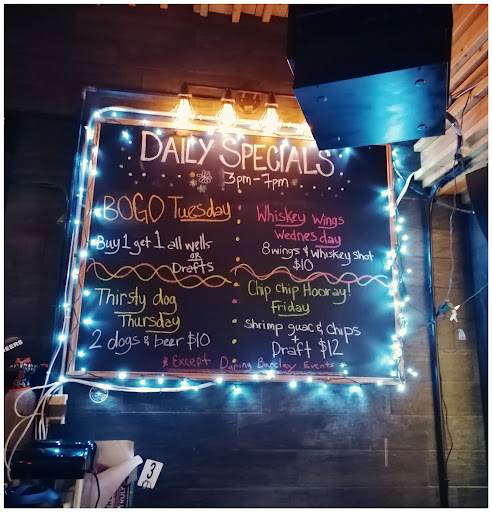 DAILY SPECIALS
3pm-7pm
BOGO Tuesday
Buy 1 get 1 all wells
or
Drafts
Whiskey Wings
Wednesday
8 wings & whiskey shot
$10
Thirsty dog
Thursday
2 dogs & beer $10
Chip chip Hooray!
Friday
shrimp guac & chips
+
Draft $12
* Except During Barclay Events *
3
TRULY